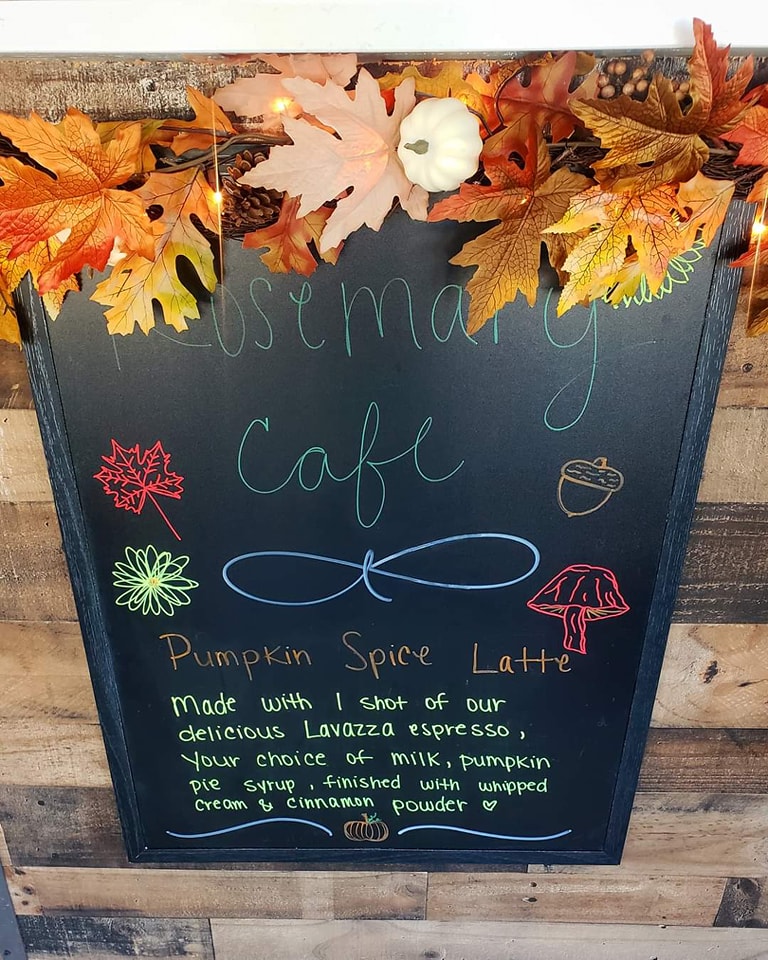 Rosemary
Cafe
Pumpkin Spice Latte
Made with 1 shot of our
delicious Lavazza espresso,
Your choice of milk, pumpkin
pie syrup, finished with whipped
cream & cinnamon powder ♡